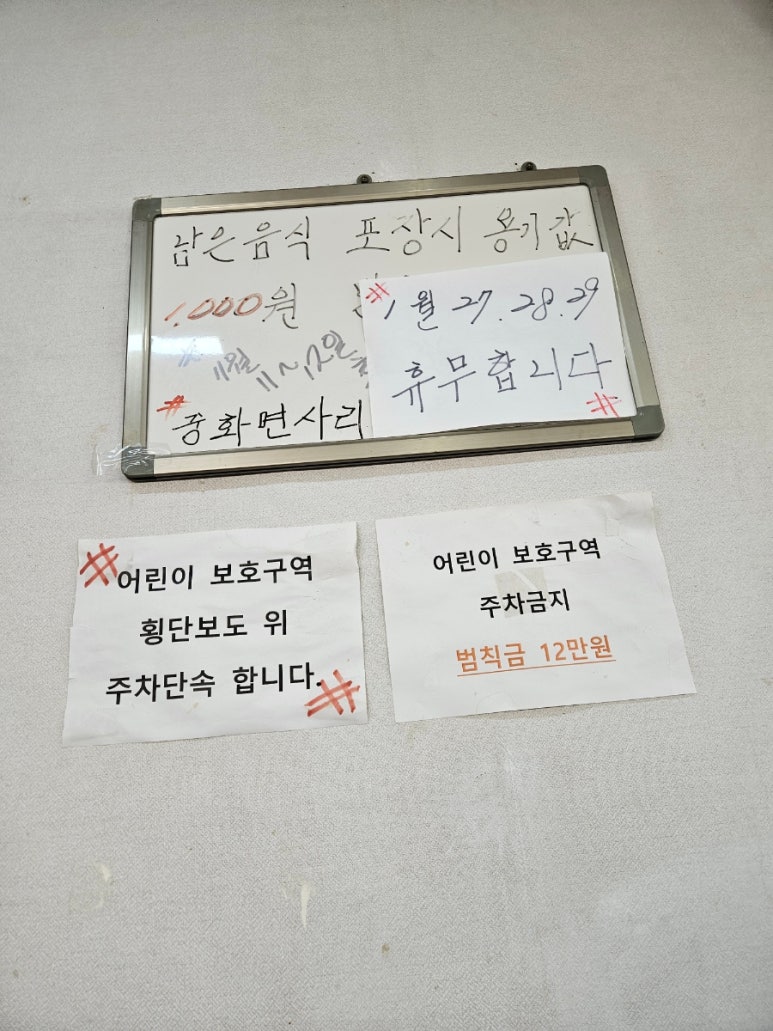 남은음식 포장시 용기값
1.000원
# 1월 27.28.29
휴무합니다 #
# 11월 11~12일
# 중화면사리
# 어린이 보호구역
횡단보도 위
주차단속 합니다. #
어린이 보호구역
주차금지
범칙금 12만원